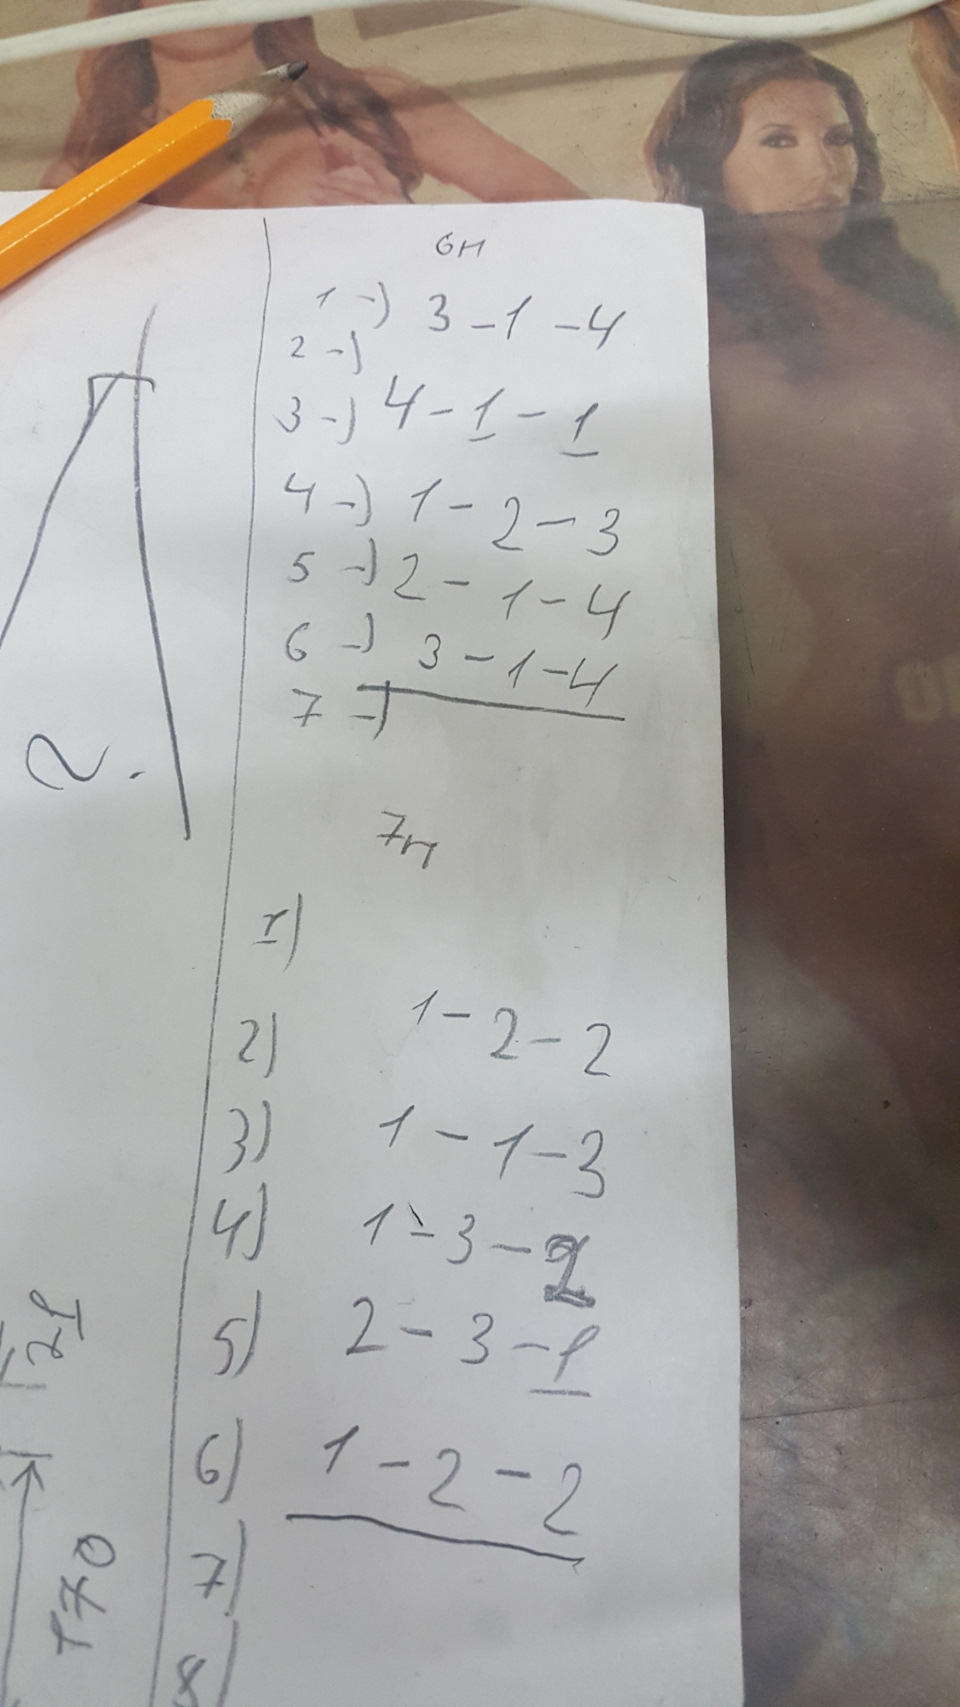 6н
1-) 3-1-4
2-)
3-) 4-1-1
4-) 1-2-3
5-) 2-1-4
6-) 3-1-4
7-)
7н
1)
2) 1-2-2
3) 1-1-3
4) 1-3-2
5) 2-3-1
6) 1-2-2
7)
8)
2.
21
170